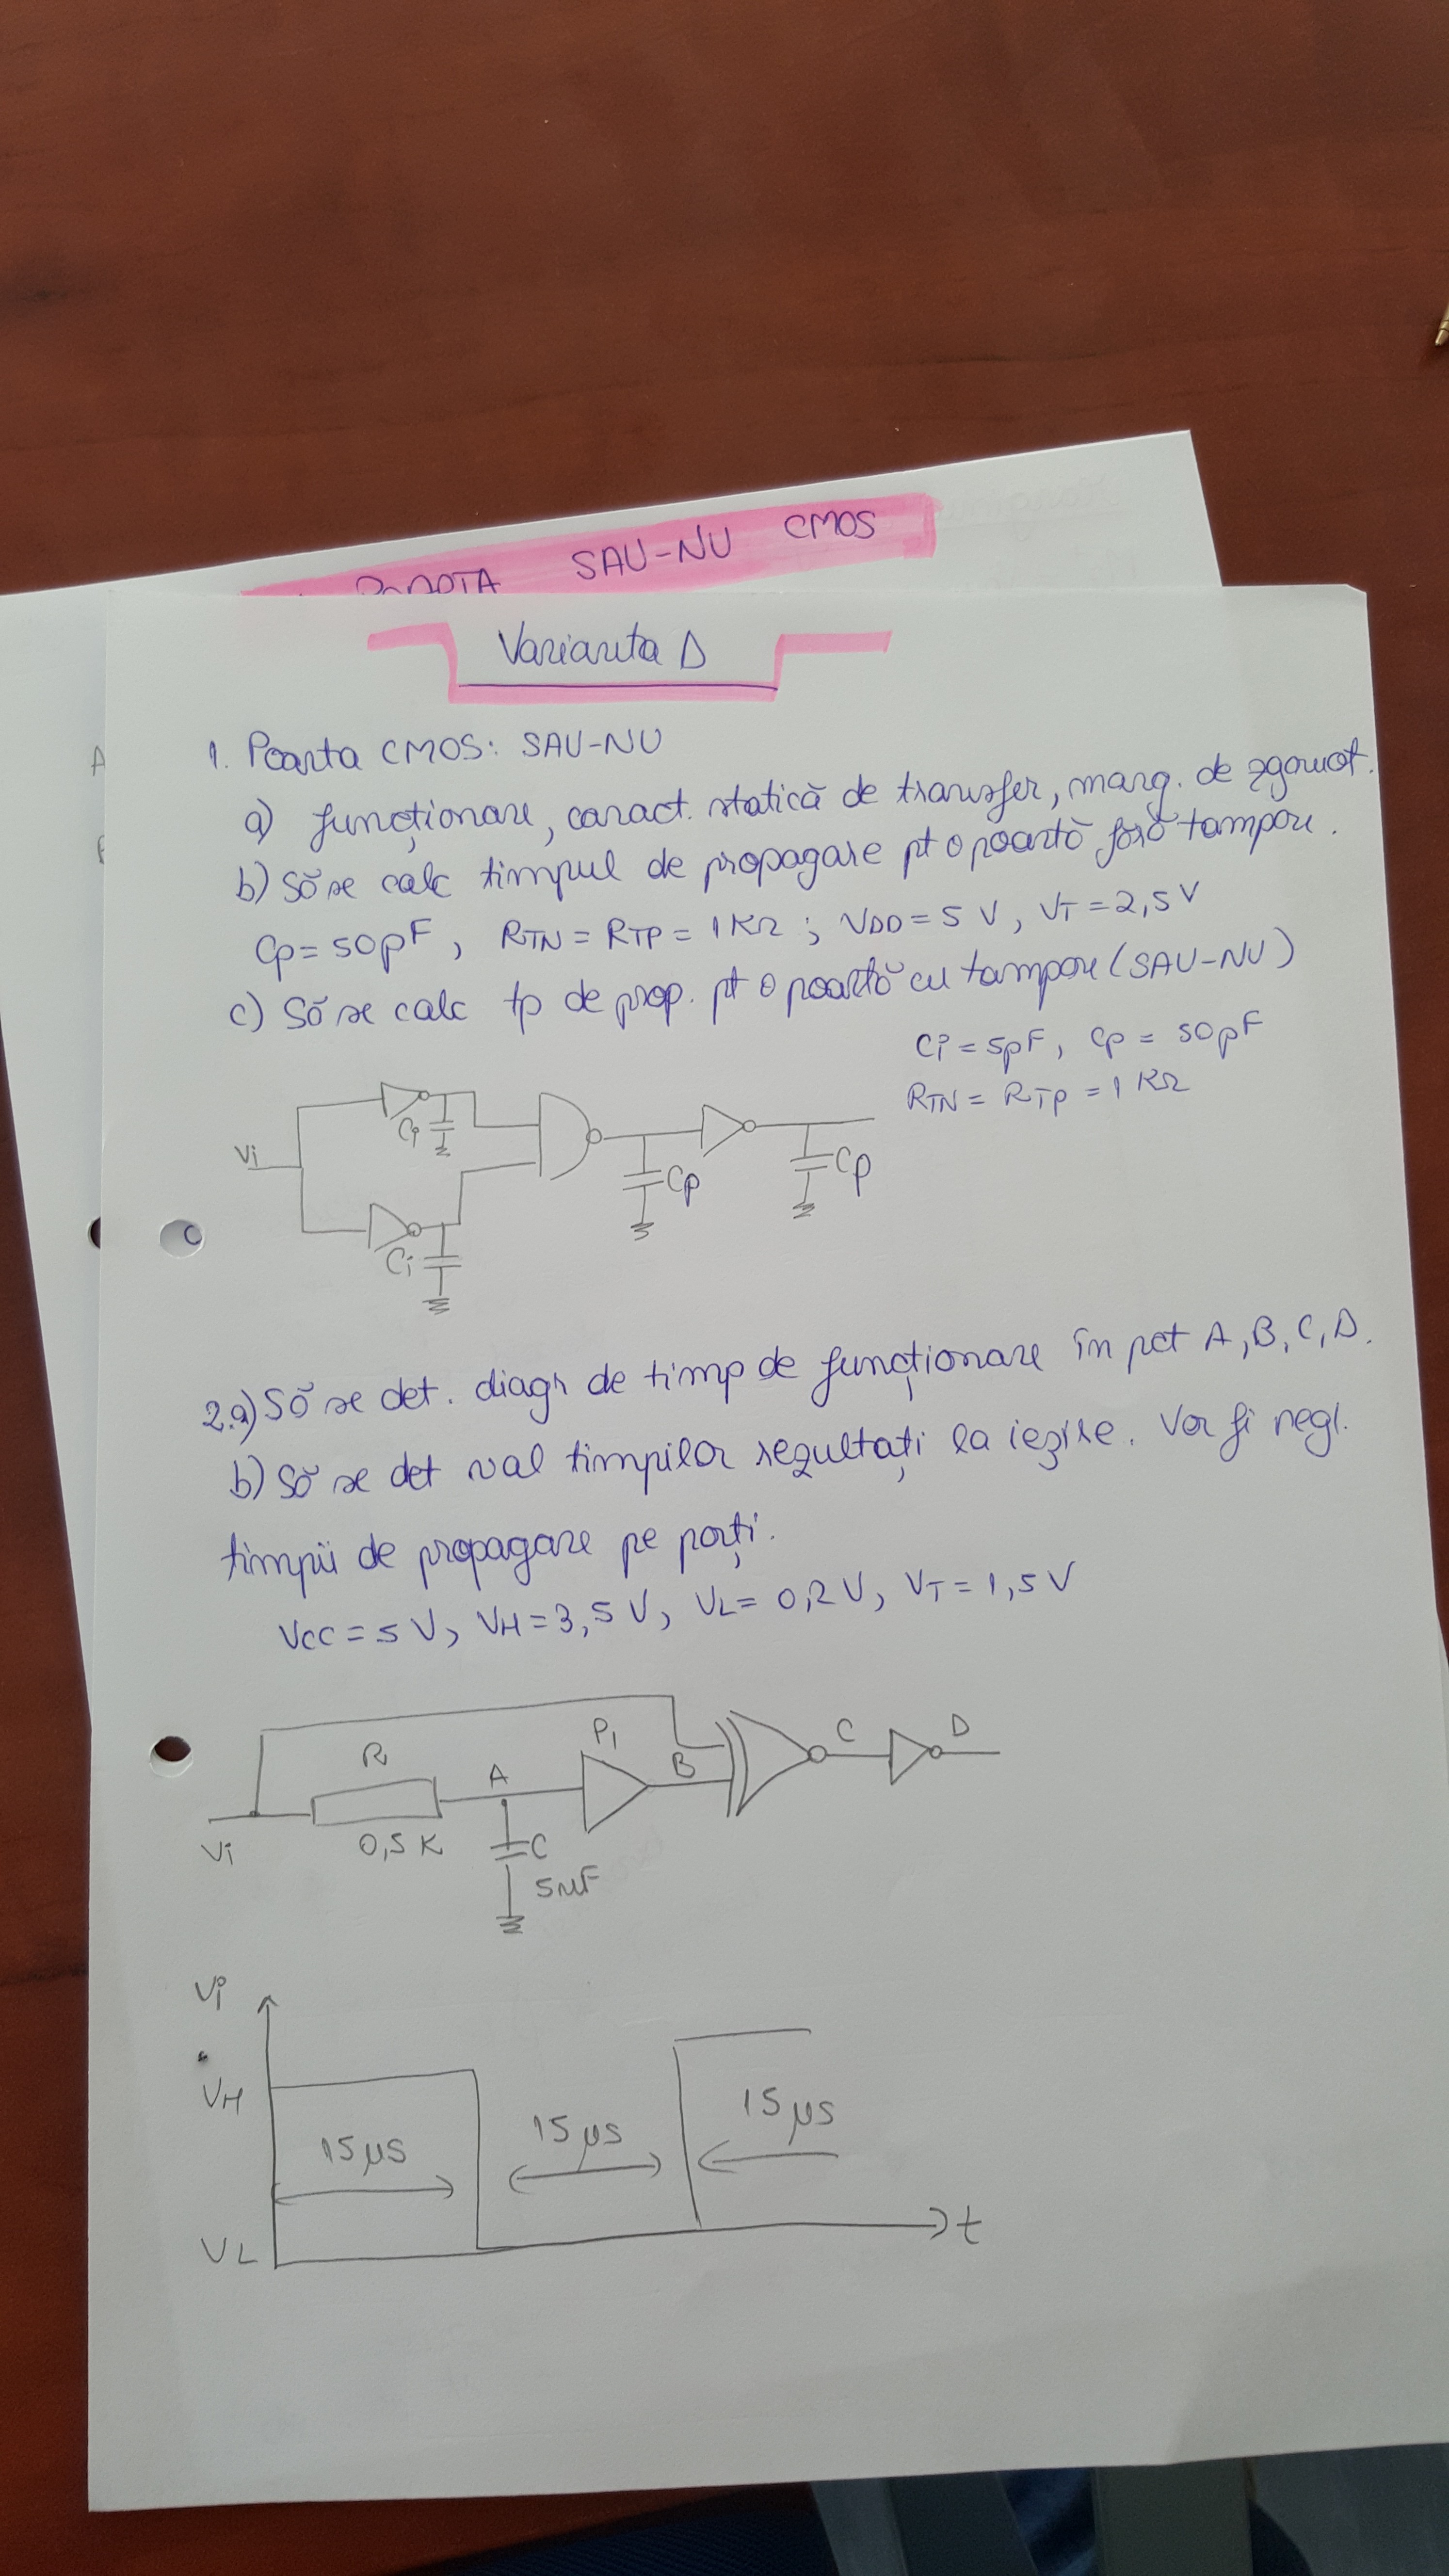 SAU-NU CMOS
Varianta D
1. Poarta CMOS: SAU-NU
a) funcționare, caract. statică de transfer, marg. de zgomot.
b) Să se calc timpul de propagare pt o poartă fără tampon.
Cp = 50pF, RTN = RTP = 1KΩ; VDD = 5V, VT = 2,5V
c) Să se calc tp de prop. pt o poartă cu tampon (SAU-NU)
Ci = 5pF, Cp = 50pF
RTN = RTP = 1KΩ
Ci
Vi
Cp
Cp
Ci
2.a) Să se det. diagr de timp de funcționare în pct A, B, C, D.
b) Să se det val timpilor rezultați la ieșire. Vor fi negl.
timpii de propagare pe porți.
VCC = 5V, VH = 3,5V, VL = 0,2V, VT = 1,5V
R
A
P1
B
C
D
Vi
0,5K
C
5nF
Vi
VH
15μs
15μs
15μs
VL
t